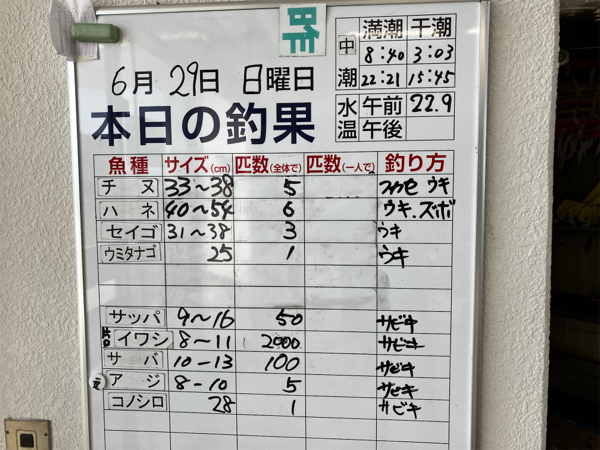 昨
満潮 干潮
中潮 8:40 3:03
22:21 15:45
6月29日 日曜日
水温 午前 22.9
午後
本日の釣果
魚種 サイズ(cm) 匹数(全体で) 匹数(一人で) 釣り方
チヌ 33〜38 5 フカセ ウキ
ハネ 40〜54 6 ウキ.ズボ
セイゴ 31〜38 3 ウキ
ウミタナゴ 25 1 ウキ
サッパ 9〜16 50 サビキ
イワシ 8〜11 2000 サビキ
サバ 10-13 100 サビキ
アジ 8-10 5 サビキ
コノシロ 28 1 サビキ